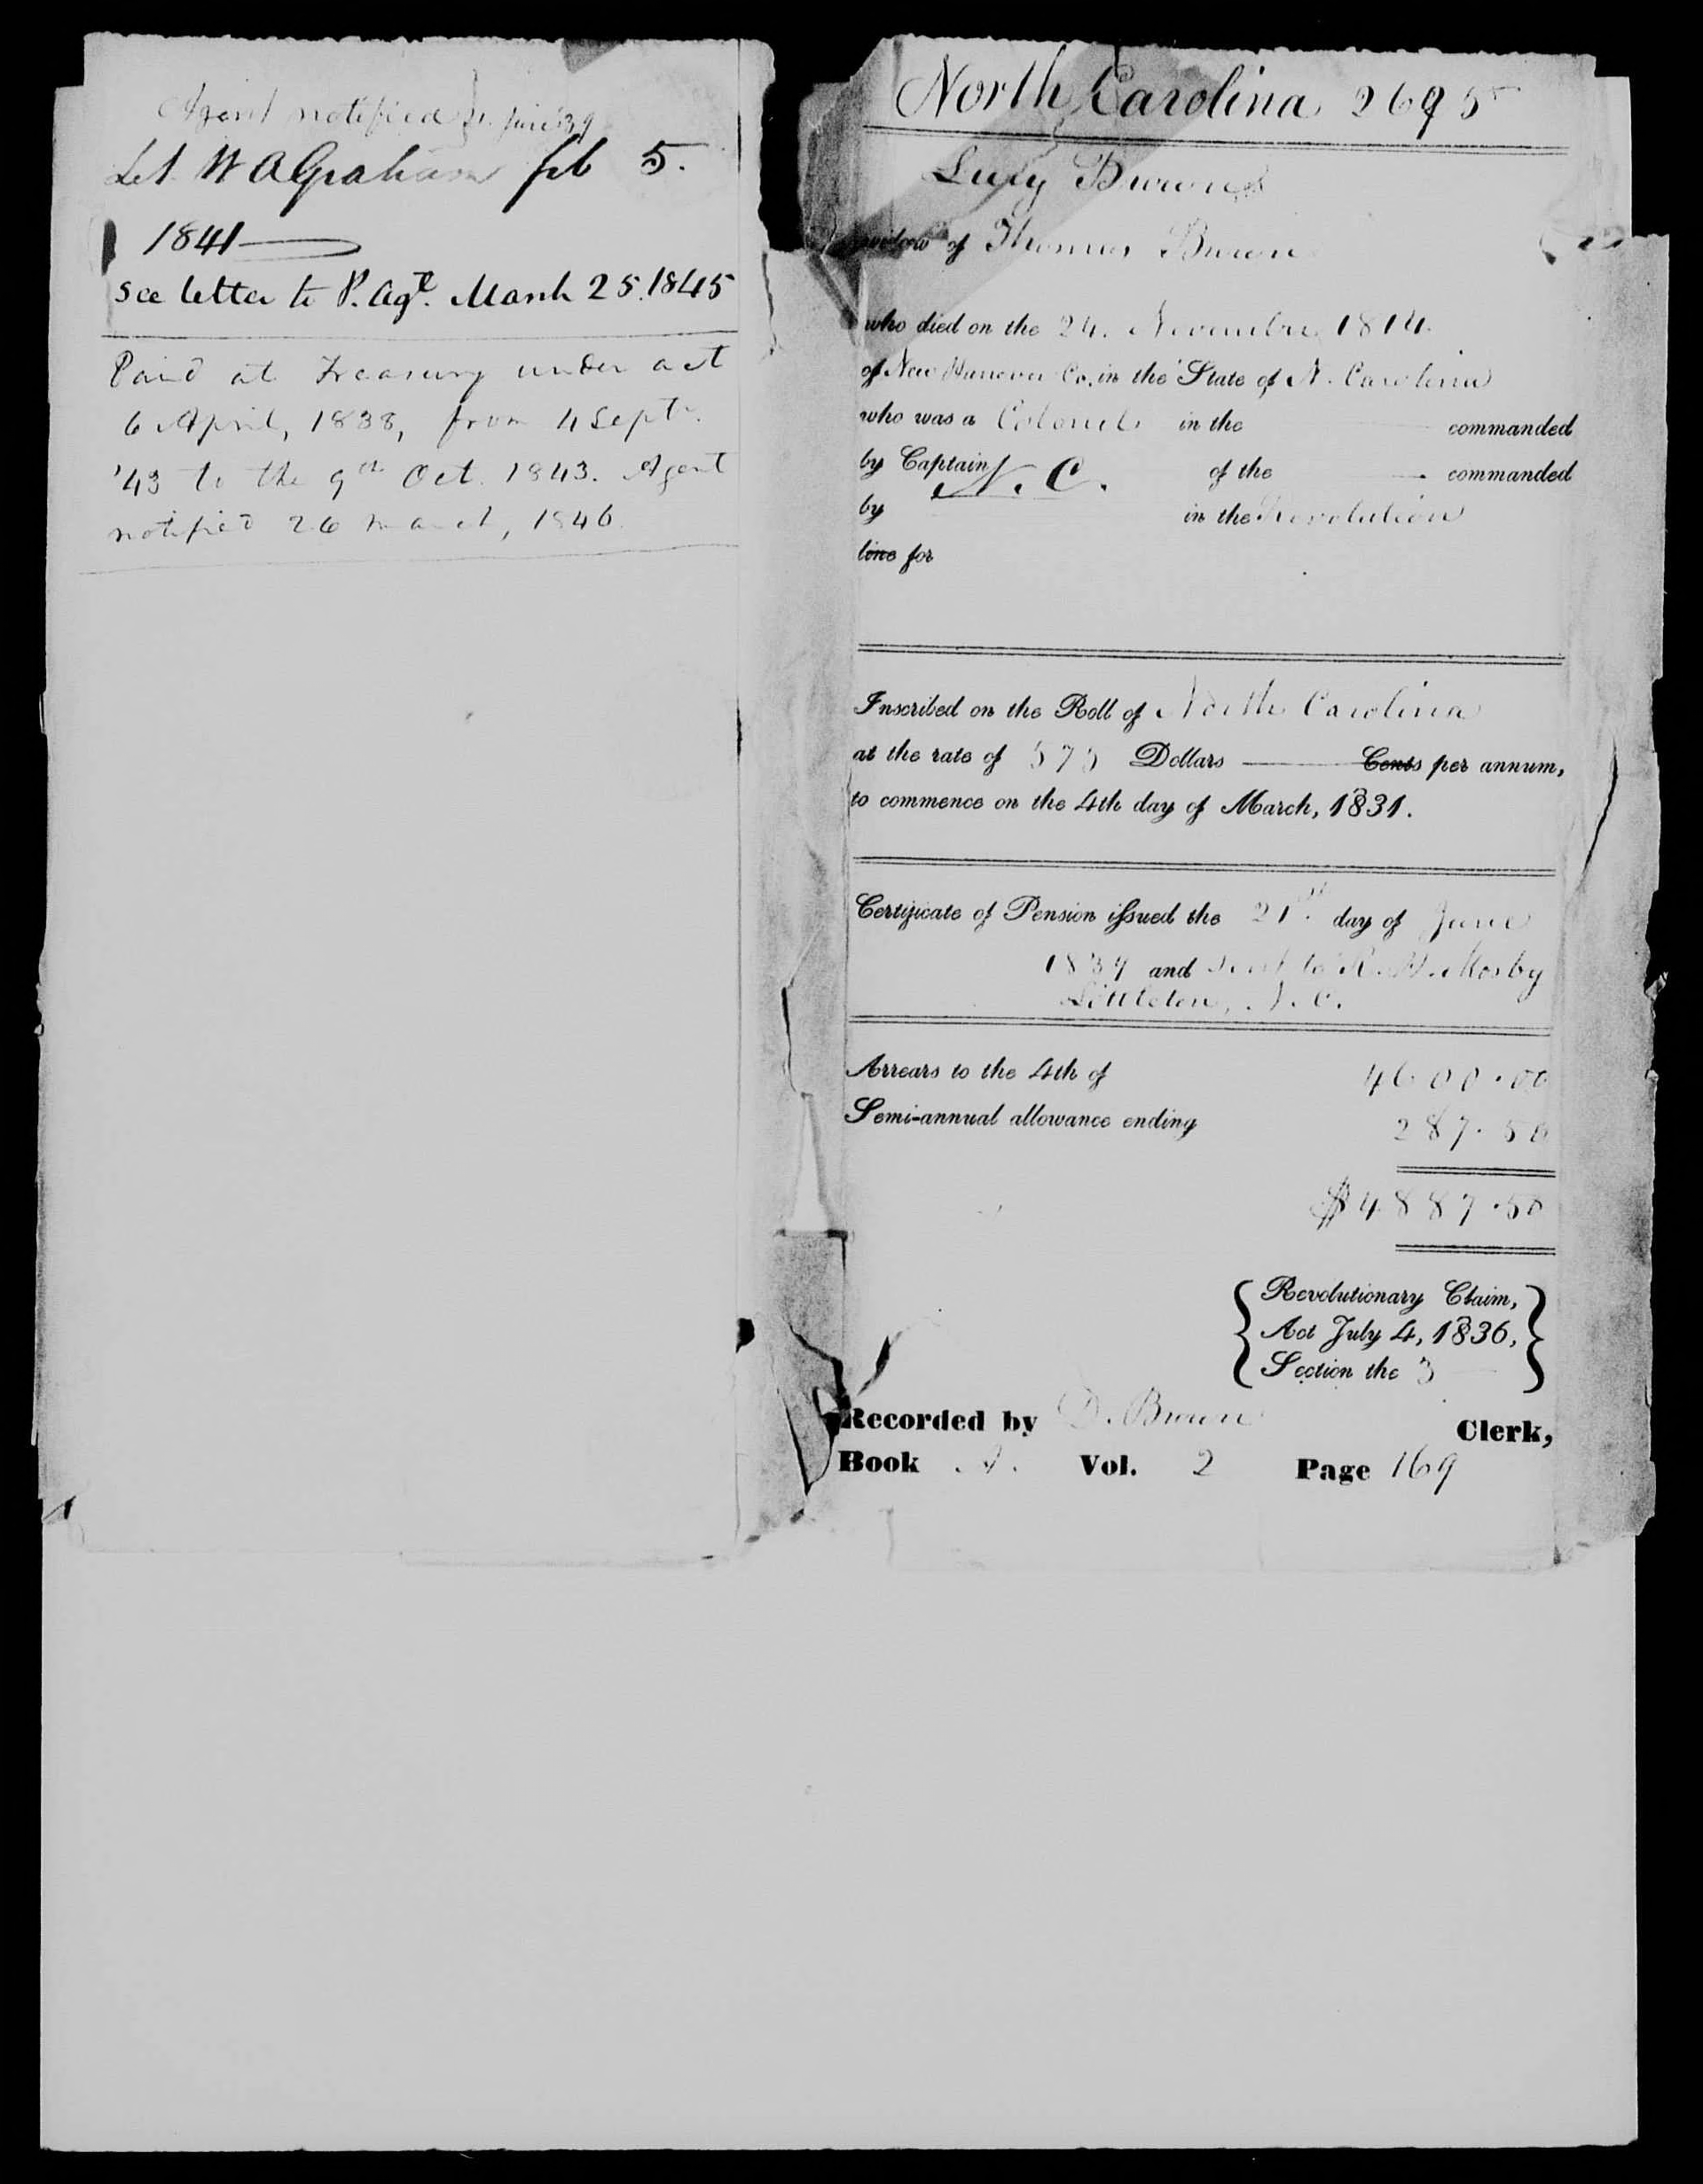 Agent notified 21. June '39
Let. W A Graham feb 5.
1841
See letter to P. Agt. March 25. 1845
Paid at Treasury under act
6 April, 1838, from 4 Septr.
'43 to the 9th Oct. 1843. Agent
notified 26 March, 1846.
North Carolina 2695
Lucy Brown
widow of Thomas Brown
who died on the 24. November 1814.
of New Hanover Co. in the State of N. Carolina
who was a Colonel in the commanded
by Captain of the commanded
N. C.
by in the Revolution
line for
Inscribed on the Roll of North Carolina
at the rate of 575 Dollars Cents per annum,
to commence on the 4th day of March, 1831.
Certificate of Pension issued the 21st. day of June
1839 and sent to R. H. Mosby
Littleton, N. C.
Arrears to the 4th of 4600.00
Semi-annual allowance ending 287.50
$4887.50
Revolutionary Claim,
Act July 4, 1836,
Section the 3
Recorded by D. Brown Clerk,
Book A. Vol. 2 Page 169